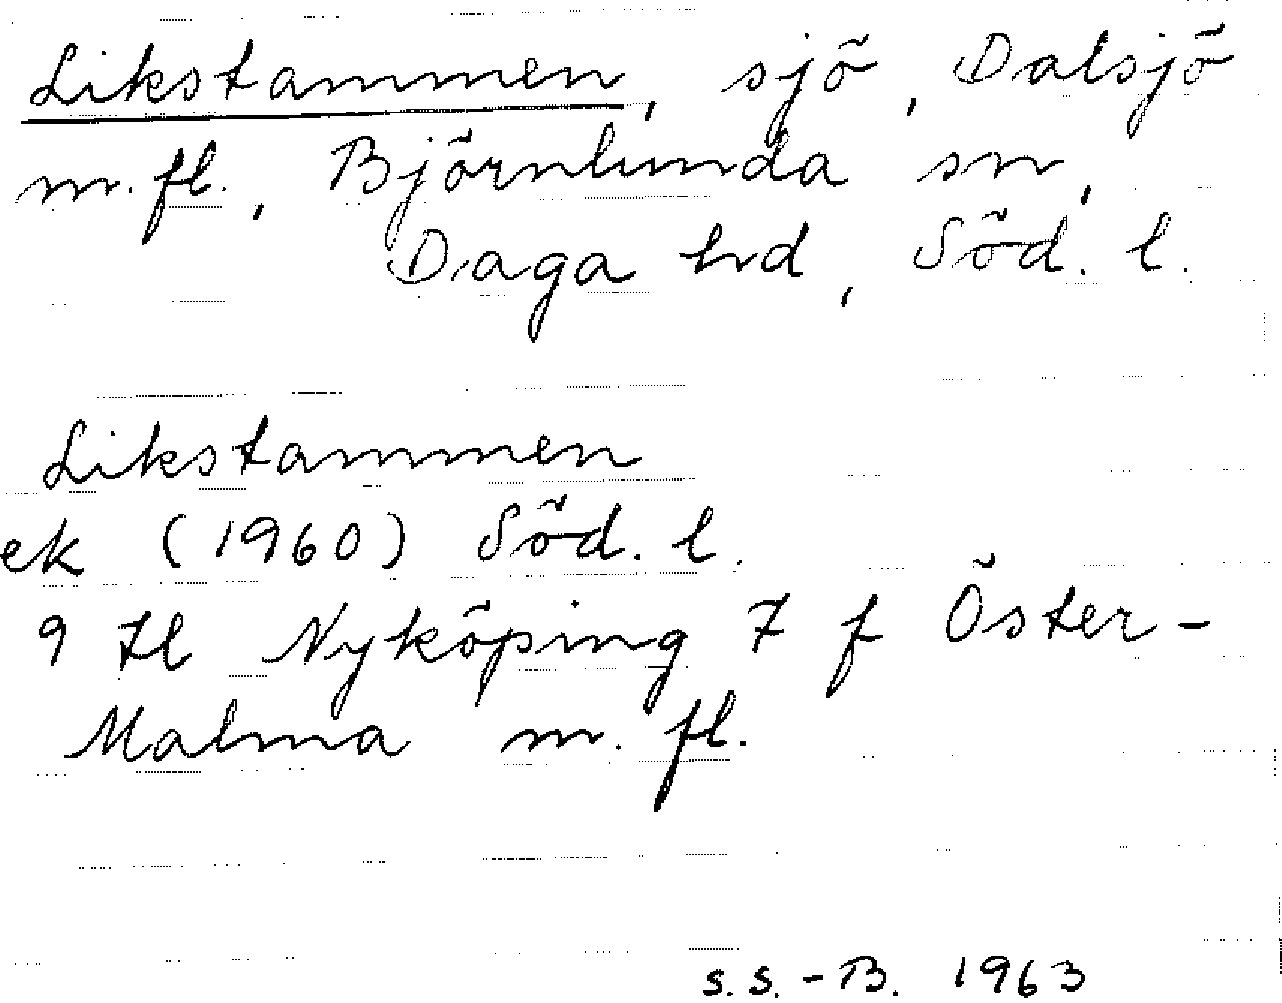 Likstammen, sjö, Dalsjö
m.fl., Björnlunda sn,
Daga hd, Söd. l.
Likstammen
ek (1960) Söd. l.
9 H Nyköping 7 f Öster-
Malma m. fl.
S.S.-B. 1963